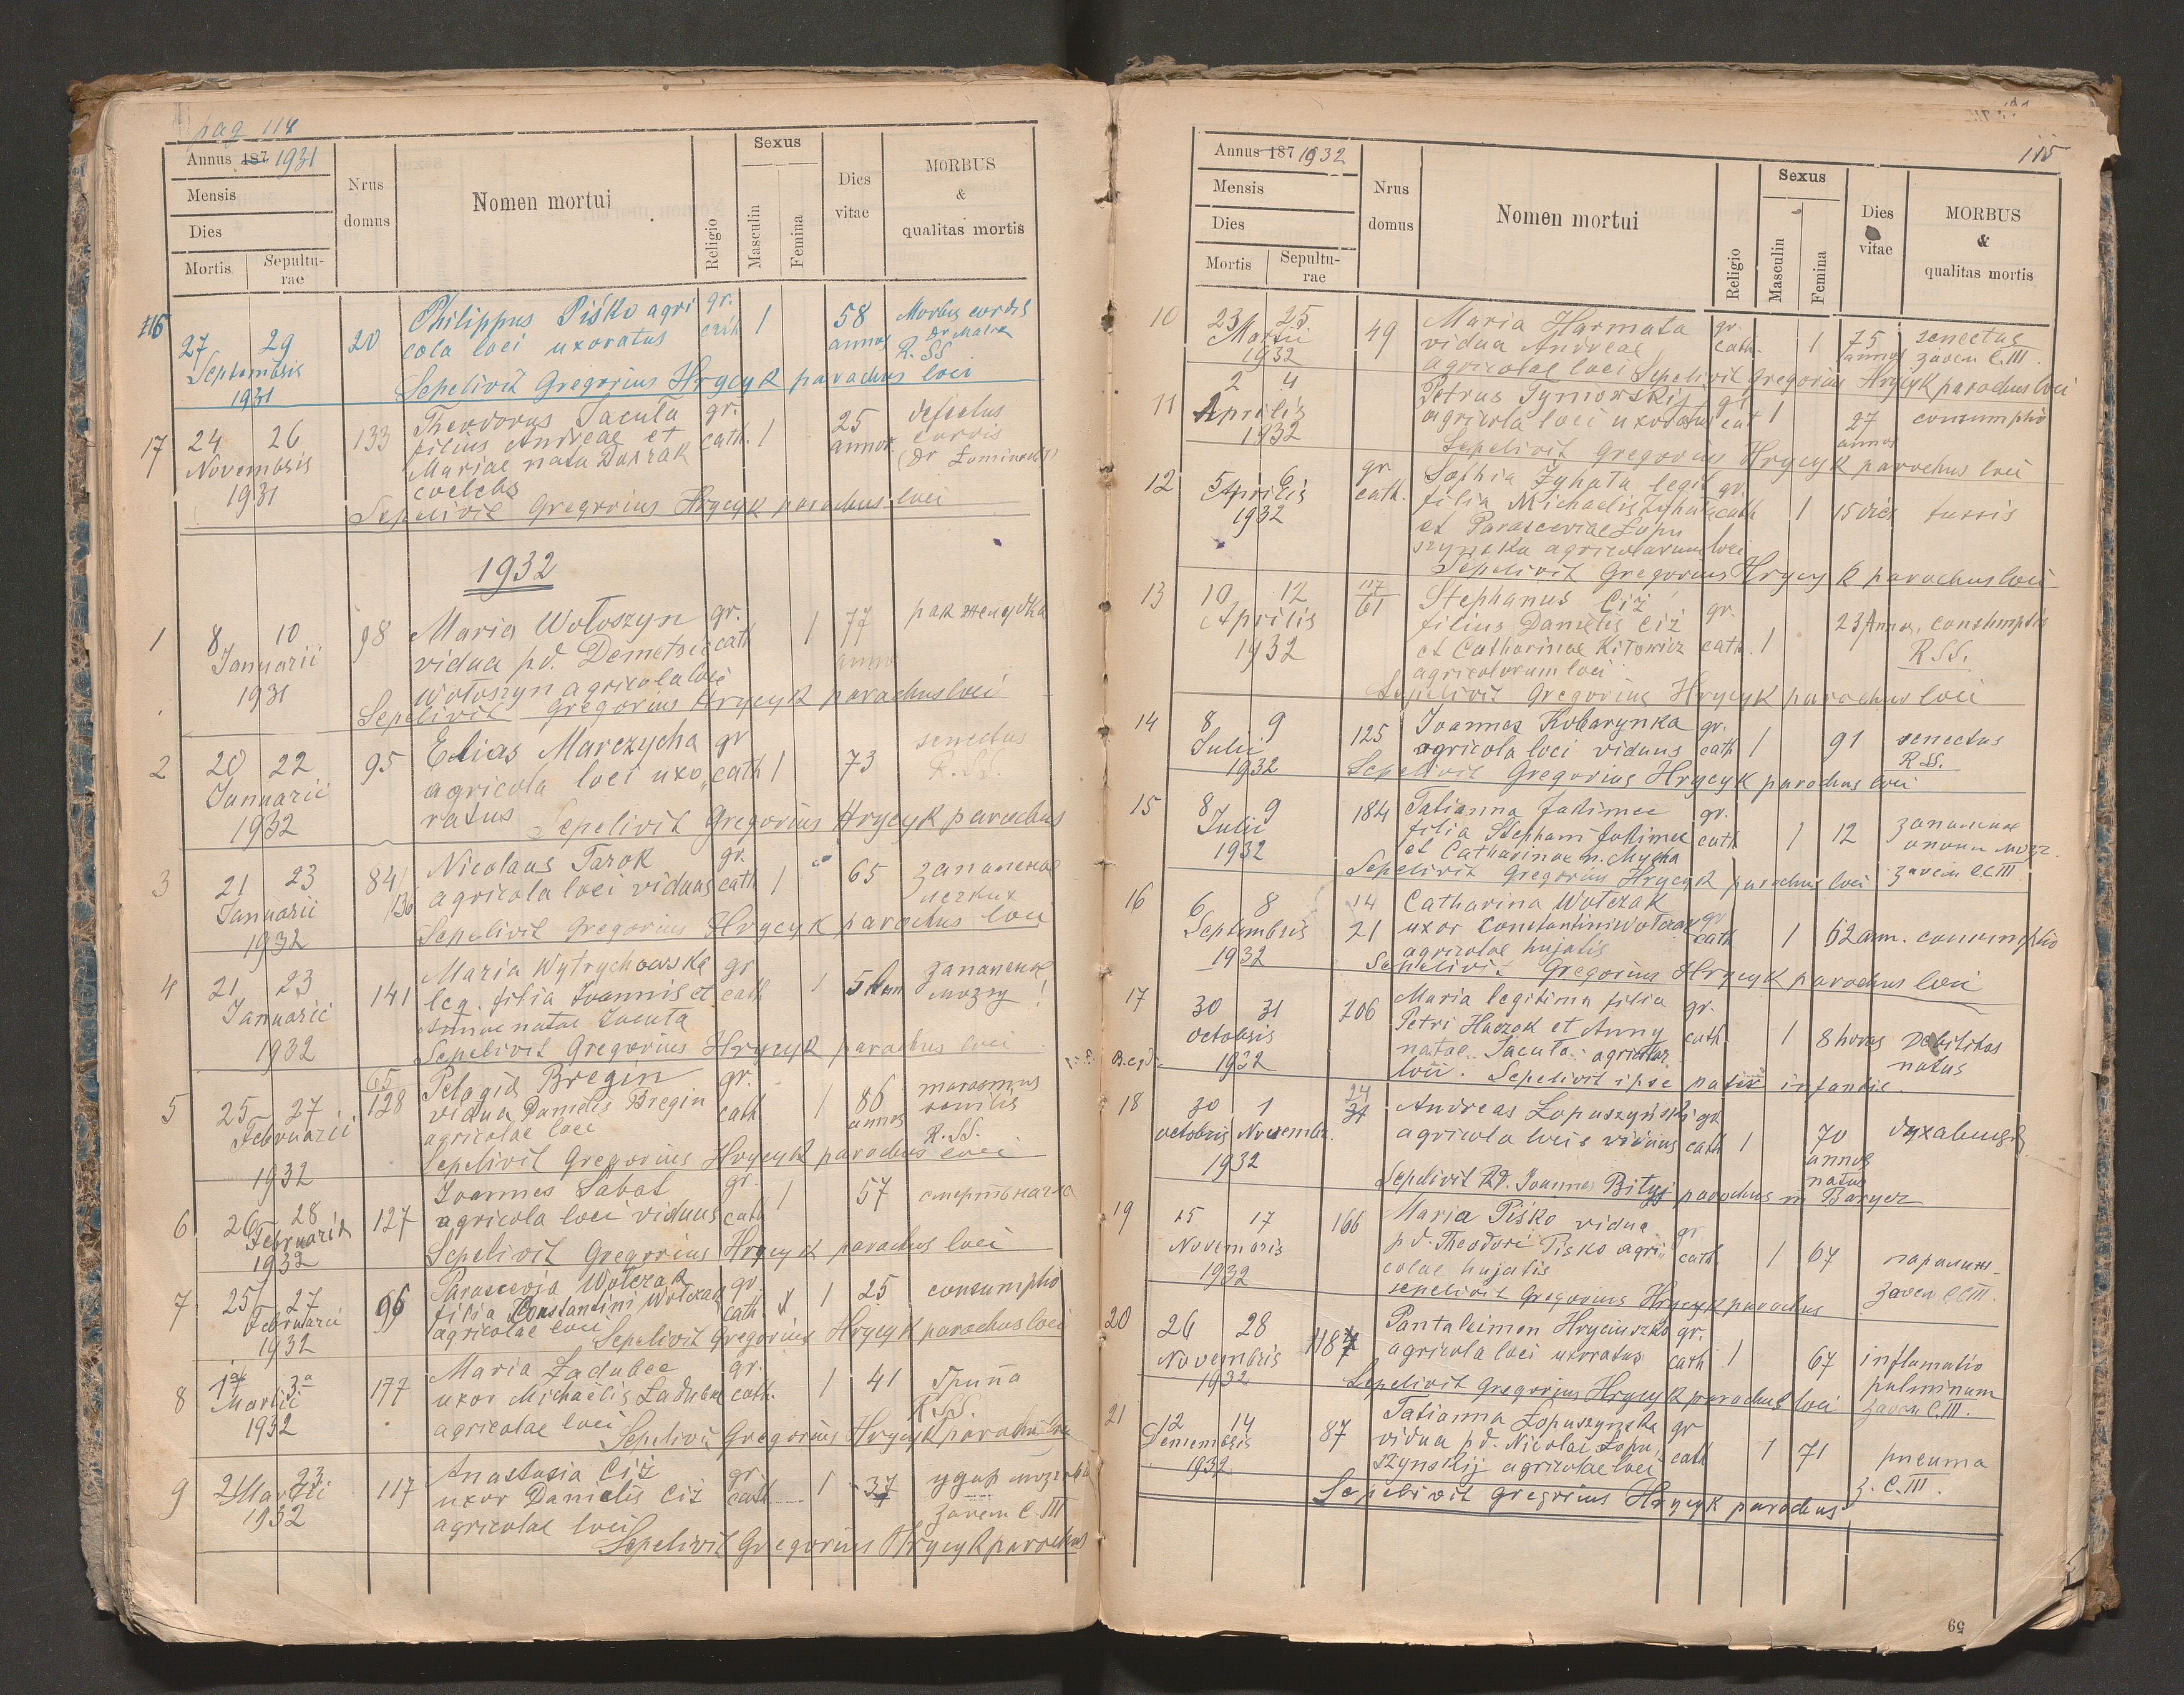 pag 114
Annus 187 1931
Mensis
Dies
Mortis
Sepultu-
rae
Nrus
domus
Nomen mortui
Religio
Sexus
Masculin
Femina
Dies
vitae
MORBUS
&
qualitas mortis
16 27 29 20 Philippus Piśko agri gr. 1 58 Morbus cordis
Septembris cola loci uxoratus cath annos
1931 R. SS
Sepelivit Gregorius Hrycyk parochus loci
17 24 26 133 Theodorus Jacuta gr. 1 25 defectus
Novembris filius Andreae et cath. annor. cordis
1931 Mariae nata
coelebs
Sepelivit Gregorius Hrycyk parochus loci
1932
1 8 10 98 Maria Wołoszyn gr. 1 77 рак жердка
Januarii vidua pd. Demetrii cath annos
1931 Wołoszyn agricola loci
Sepelivit Gregorius Hrycyk parochus loci
2 20 22 95 Elias Marczycha gr 1 73 senectus
Januarii agricola loci uxo„ cath R. SS.
1932 ratus
Sepelivit Gregorius Hrycyk parochus
3 21 23 84/136 Nicolaus Tarok gr. 1 65 запаленє
Januarii agricola loci viduus cath легких
1932
Sepelivit Gregorius Hrycyk parochus loci
4 21 23 141 Maria Wytrychowska gr 1 5 запаленє
Januarii leg. filia Joannis et cath мозгу !
1932 Annae natae Jacuta
Sepelivit Gregorius Hrycyk parochus loci
5 25 27 65/128 Pelagia Bregin gr. 1 86 marasmus
Februarii vidua Danielis Bregin cath annos senilis
1932 agricolae loci R. SS.
Sepelivit Gregorius Hrycyk parochus loci
6 26 28 127 Joannes Sabat gr. 1 57 смерть нагла
Februarii agricola loci viduus cath
1932
Sepelivit Gregorius Hrycyk parochus loci
7 25 27 96 Parascevia Wołczak gr. 1 25 consumptio
Februarii filia Constantini Wołczak cath.
1932 agricolae loci
Sepelivit Gregorius Hrycyk parochus loci
8 1 3 177 Maria Ładubec gr. 1 41 Грипа
Martii uxor Michaelis Ładubec cath. R. SS.
1932 agricolae loci
Sepelivit Gregorius Hrycyk parochus loci
9 21 23 117 Anastasia Ciż gr. 1 37 удар мозговий
Martii uxor Danielis Ciż cath завем С. ТП
1932 agricolae loci
Sepelivit Gregorius Hrycyk parochus
Annus 187 1932
115
Mensis
Dies
Mortis
Sepultu-
rae
Nrus
domus
Nomen mortui
Religio
Sexus
Masculin
Femina
Dies
vitae
MORBUS
&
qualitas mortis
10 23 25 49 Maria Harmata gr. 1 75 senectus
Martii vidua Andreae cath. annos
1932 agricolae loci Sepelivit Gregorius Hrycyk parochus loci
11 2 4 Petrus Tymowskij gr 1 27 consumptio
Aprilis agricola loci uxoratus cat annos
1932
Sepelivit Gregorius Hrycyk parochus loci
12 5 6 gr cath. Sophia Zyhata legit gr. 1 15 dies tussis
Aprilis filia Michaelis Zyhata cath
1932 et Parasceviae Łopu
szynska agricolarum loci
Sepelivit Gregorius Hrycyk parochus loci
13 10 12 117/61 Stephanus Ciż gr. 1 23 Annos. consumptio
Aprilis filius Danielis Ciż cath. R. SS.
1932 et Catharinae Kitowicz
agricolorum loci
Sepelivit Gregorius Hrycyk parochus loci
14 8 9 125 Joannes Kobarynka gr. 1 91 senectus
Julii agricola loci viduus cath R SS.
1932 Sepelivit Gregorius Hrycyk parochus loci
15 8 9 184 Tatianna Jakimec gr. 1 12 запаленє
Julii filia Stephani Jakimec cath
1932 et Catharinae n. Mycha
Sepelivit Gregorius Hrycyk parochus loci
16 6 8 14 21 Catharina Wołczak gr 1 62 ann. consumptio
Septembris uxor Constantini Wołczak cath
1932 agricolae hujatis
Sepelivit Gregorius Hrycyk parochus loci
17 30 31 206 Maria legitima filia gr. 1 8 horas Debilitas
octobris Petri Haczok et Anny cath. natus
1932 natae Jacuta agricolar.
loci. Sepelivit ipse pater infantis
18 30 1 24 Andreas Łopuszyński gr 1 70
octobris Novembr. agricola loci viduus cath annos
1932 natus
Sepelivit Rd. Joannes Bityj parochus in Barycz
19 15 17 166 Maria Piśko vidua gr 1 67
Novembris pd. Theodori Pisko agri„ cath
1932 colae hujatis
sepelivit Gregorius Hrycyk parochus
20 26 28 Pantaleimon Hryciuszko gr. 1 67 inflamatio
Novembris agricola loci uxoratus cath pulminum
1932
Sepelivit Gregorius Hrycyk parochus loci
21 12 14 87 Tatianna Łopuszynska gr 1 71 pneuma
Decembris vidua pd. Nicolai Łopu„ cath
1932 szynskij agricolae loci
Sepelivit Gregorius Hrycyk parochus
59